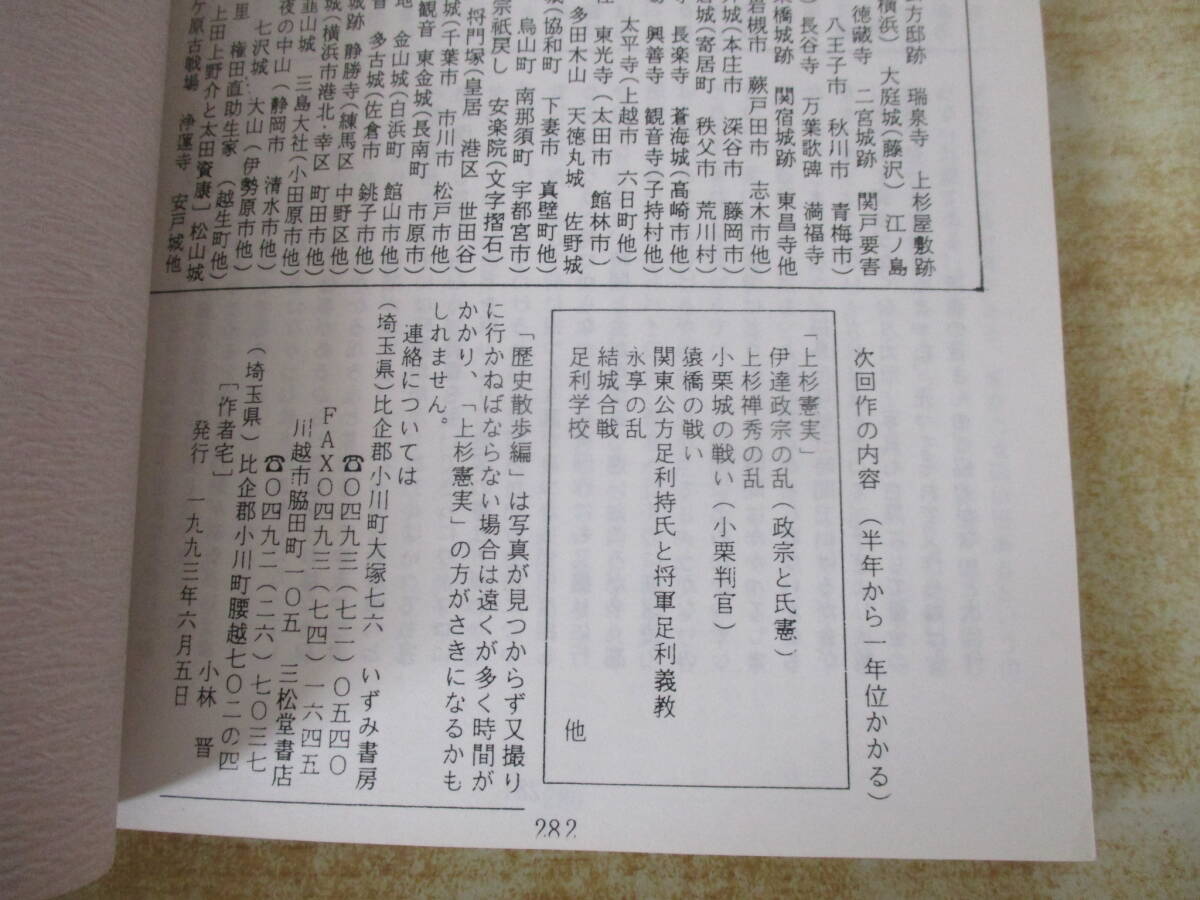 方邸跡 瑞泉寺 上杉屋敷跡
横浜) 大庭城(藤沢) 江ノ島
徳蔵寺 二宮城跡 関戸要害
) 長谷寺 万葉歌碑 満福寺
八王子市 秋川市 青梅市)
橋城跡 関宿城跡 東昌寺他
岩槻市 蕨戸田市 志木市他)
城(本庄市 深谷市 藤岡市)
居城(寄居町 秩父市 荒川村)
寺 長楽寺 蒼海城(高崎市他)
場 興善寺 観音寺(子持村他)
太平寺(上越市 六日町他)
社 東光寺(太田市 館林市)
多田木山 天徳丸城 佐野城
城(協和町 下妻市 真壁町他)
烏山町 南那須町 宇都宮市)
宗祇戻し 安楽院(文字摺石)
将門塚(皇居 港区 世田谷)
城(千葉市 市川市 松戸市他)
観音 東金城(長南町 市原市)
地 金山城(白浜町 館山市他)
音 多古城(佐倉市 銚子市他)
城跡 静勝寺(練馬区 中野区他)
城(横浜市港北・幸区 町田市他)
韮山城 三島大社(小田原市他)
夜の中山(静岡市 清水市他)
七沢城 大山(伊勢原市他)
里 権田直助生家 (越生町他)
上田上野介と太田資康] 松山城
ケ原古戦場 浄蓮寺 安戸城他
次回作の内容 (半年から一年位かかる)
「上杉憲実」
伊達政宗の乱(政宗と氏憲)
上杉禅秀の乱
小栗城の戦い(小栗判官)
猿橋の戦い
関東公方足利持氏と将軍足利義教
永享の乱
結城合戦
足利学校 他
「歴史散歩編」は写真が見つからず又撮り
に行かねばならない場合は遠くが多く時間が
かかり、「上杉憲実」の方がさきになるかも
しれません。
連絡については
(埼玉県)比企郡小川町大塚七六 いずみ書房
☎〇四九三(七二)〇五四〇
FAX〇四九三(七四)一六四五
川越市脇田町一〇五 三松堂書店
☎〇四九二(二六)七〇三七
(埼玉県)比企郡小川町腰越七〇二の四
[作者宅] 小林 晋
発行 一九九三年六月五日
282